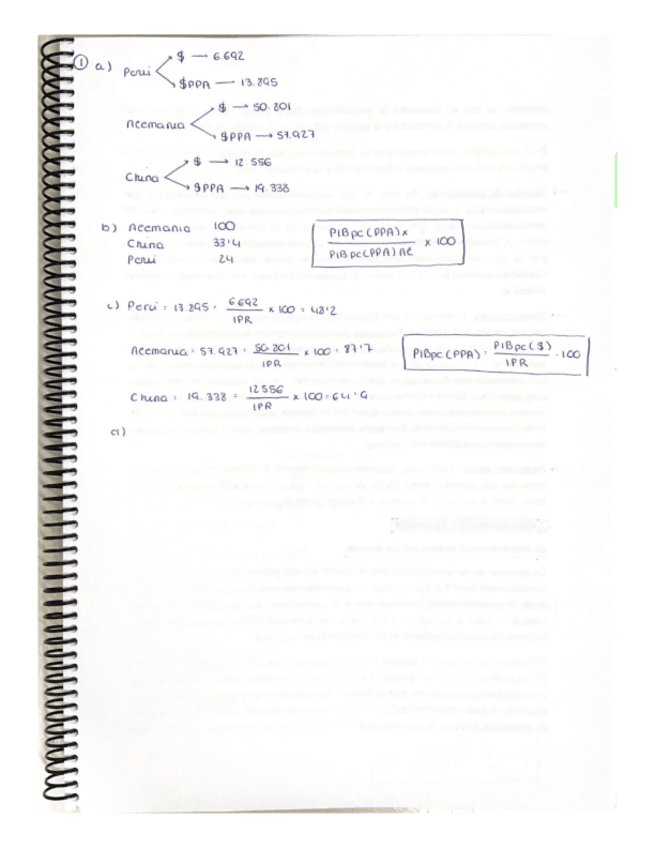 ① a) Perú $ → 6.692
$PPA → 13.895
Alemania $ → 50.801
$PPA → 57.927
China $ → 12.556
$PPA → 19.338
b) Alemania 100
China 33'4
Perú 24
PIBpc(PPA)x / PIBpc(PPA)Al x 100
c) Perú = 13.895 = 6692 / IPR x 100 = 48'2
Alemania = 57.927 = 50.801 / IPR x 100 = 87'7
PIBpc(PPA) = PIBpc($) / IPR · 100
China = 19.338 = 12556 / IPR x 100 = 64'9
d)